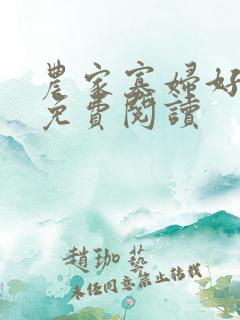 農家寡婦好
免費閱讀
趙珈藝
未經同意禁止轉載